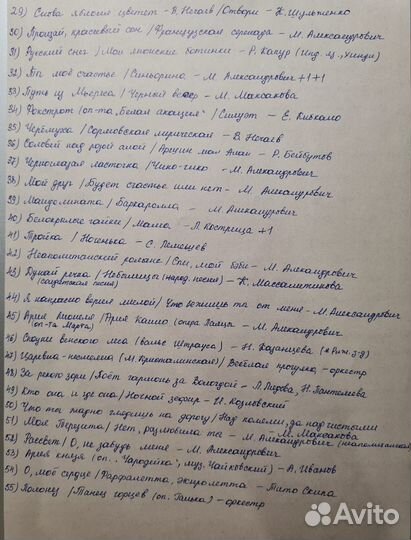 29) Снова яблоня цветет - В. Нечаев / Отвори - К. Шульженко
30) Прощай, красивый сон / Французская серенада - М. Александрович
31) Русский снег / Мои японские ботинки - Р. Капур (Инд. яз., Хинди)
32) Ты моё счастье / Синьорина - М. Александрович +1+1
33) Путь из Мьереса / Черный - М. Максакова
34) Фокстрот (оп-та „Белая акация") / Силуэт - Е. Кибкало
35) Черёмуха / Сормовская лирическая - В. Нечаев
36) Соловей над розой алой / Аршин мал Алан - Р. Бейбутов
37) Черноглазая ласточка / Чико-чико - М. Александрович
38) Мой друг / Будет счастье или нет - М. Александрович
39) Мандолината / Баркаролла - М. Александрович
40) Белокрылые чайки / Мама - Л. Кострица +1
41) Тройка / Ноченька - С. Лемешев
42) Неаполитанский романс / Спи, мой бэби - М. Александрович
43) Дунай речка / Небылицы (народ. песня) - К. Массалитинова
(солдатская песня)
44) Я напрасно верил милой / Что ты от меня - М. Александрович
45) Ария Лионеля / Ария Канио (опера Паяцы) - М. Александрович
(оп-та Марта)
46) Сказки венского леса (вальс Штрауса) - Н. Казанцева (* з-д)
47) Царевна-несмеяна (М. ) / Весёлая прогулка - оркестр
48) За рекою зори / Поёт гармонь за Вологдой - Л. Зыкова, Н. Пантелеева
49) Кто она и где она / Ночной зефир - И. Козловский
50) Что ты жадно глядишь на дорогу / Над полями, да над чистыми
М. Максакова
51) Моя Терцита / Нет, разлюбила ты - М. Александрович
52) Рассвет / О, не забудь меня - М. Александрович (неаполитанская)
53) Ария князя (оп. „Чародейка", муз. Чайковский) - А. Иванов
54) О, моё сердце / Фарфалетта, жироллетта - Тито Скипа
55) Полонез / Танец горцев (оп. Галька) - оркестр
Avito